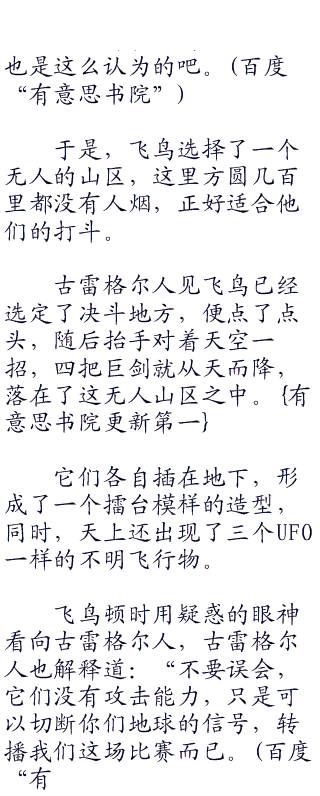 也是这么认为的吧。(百度
“有意思书院”)
于是，飞鸟选择了一个
无人的山区，这里方圆几百
里都没有人烟，正好适合他
们的打斗。
古雷格尔人见飞鸟已经
选定了决斗地方，便点了点
头，随后抬手对着天空一
招，四把巨剑就从天而降，
落在了这无人山区之中。{有
意思书院更新第一}
它们各自插在地下，形
成了一个擂台模样的造型，
同时，天上还出现了三个UFO
一样的不明飞行物。
飞鸟顿时用疑惑的眼神
看向古雷格尔人，古雷格尔
人也解释道：“不要误会，
它们没有攻击能力，只是可
以切断你们地球的信号，转
播我们这场比赛而已。(百度
“有